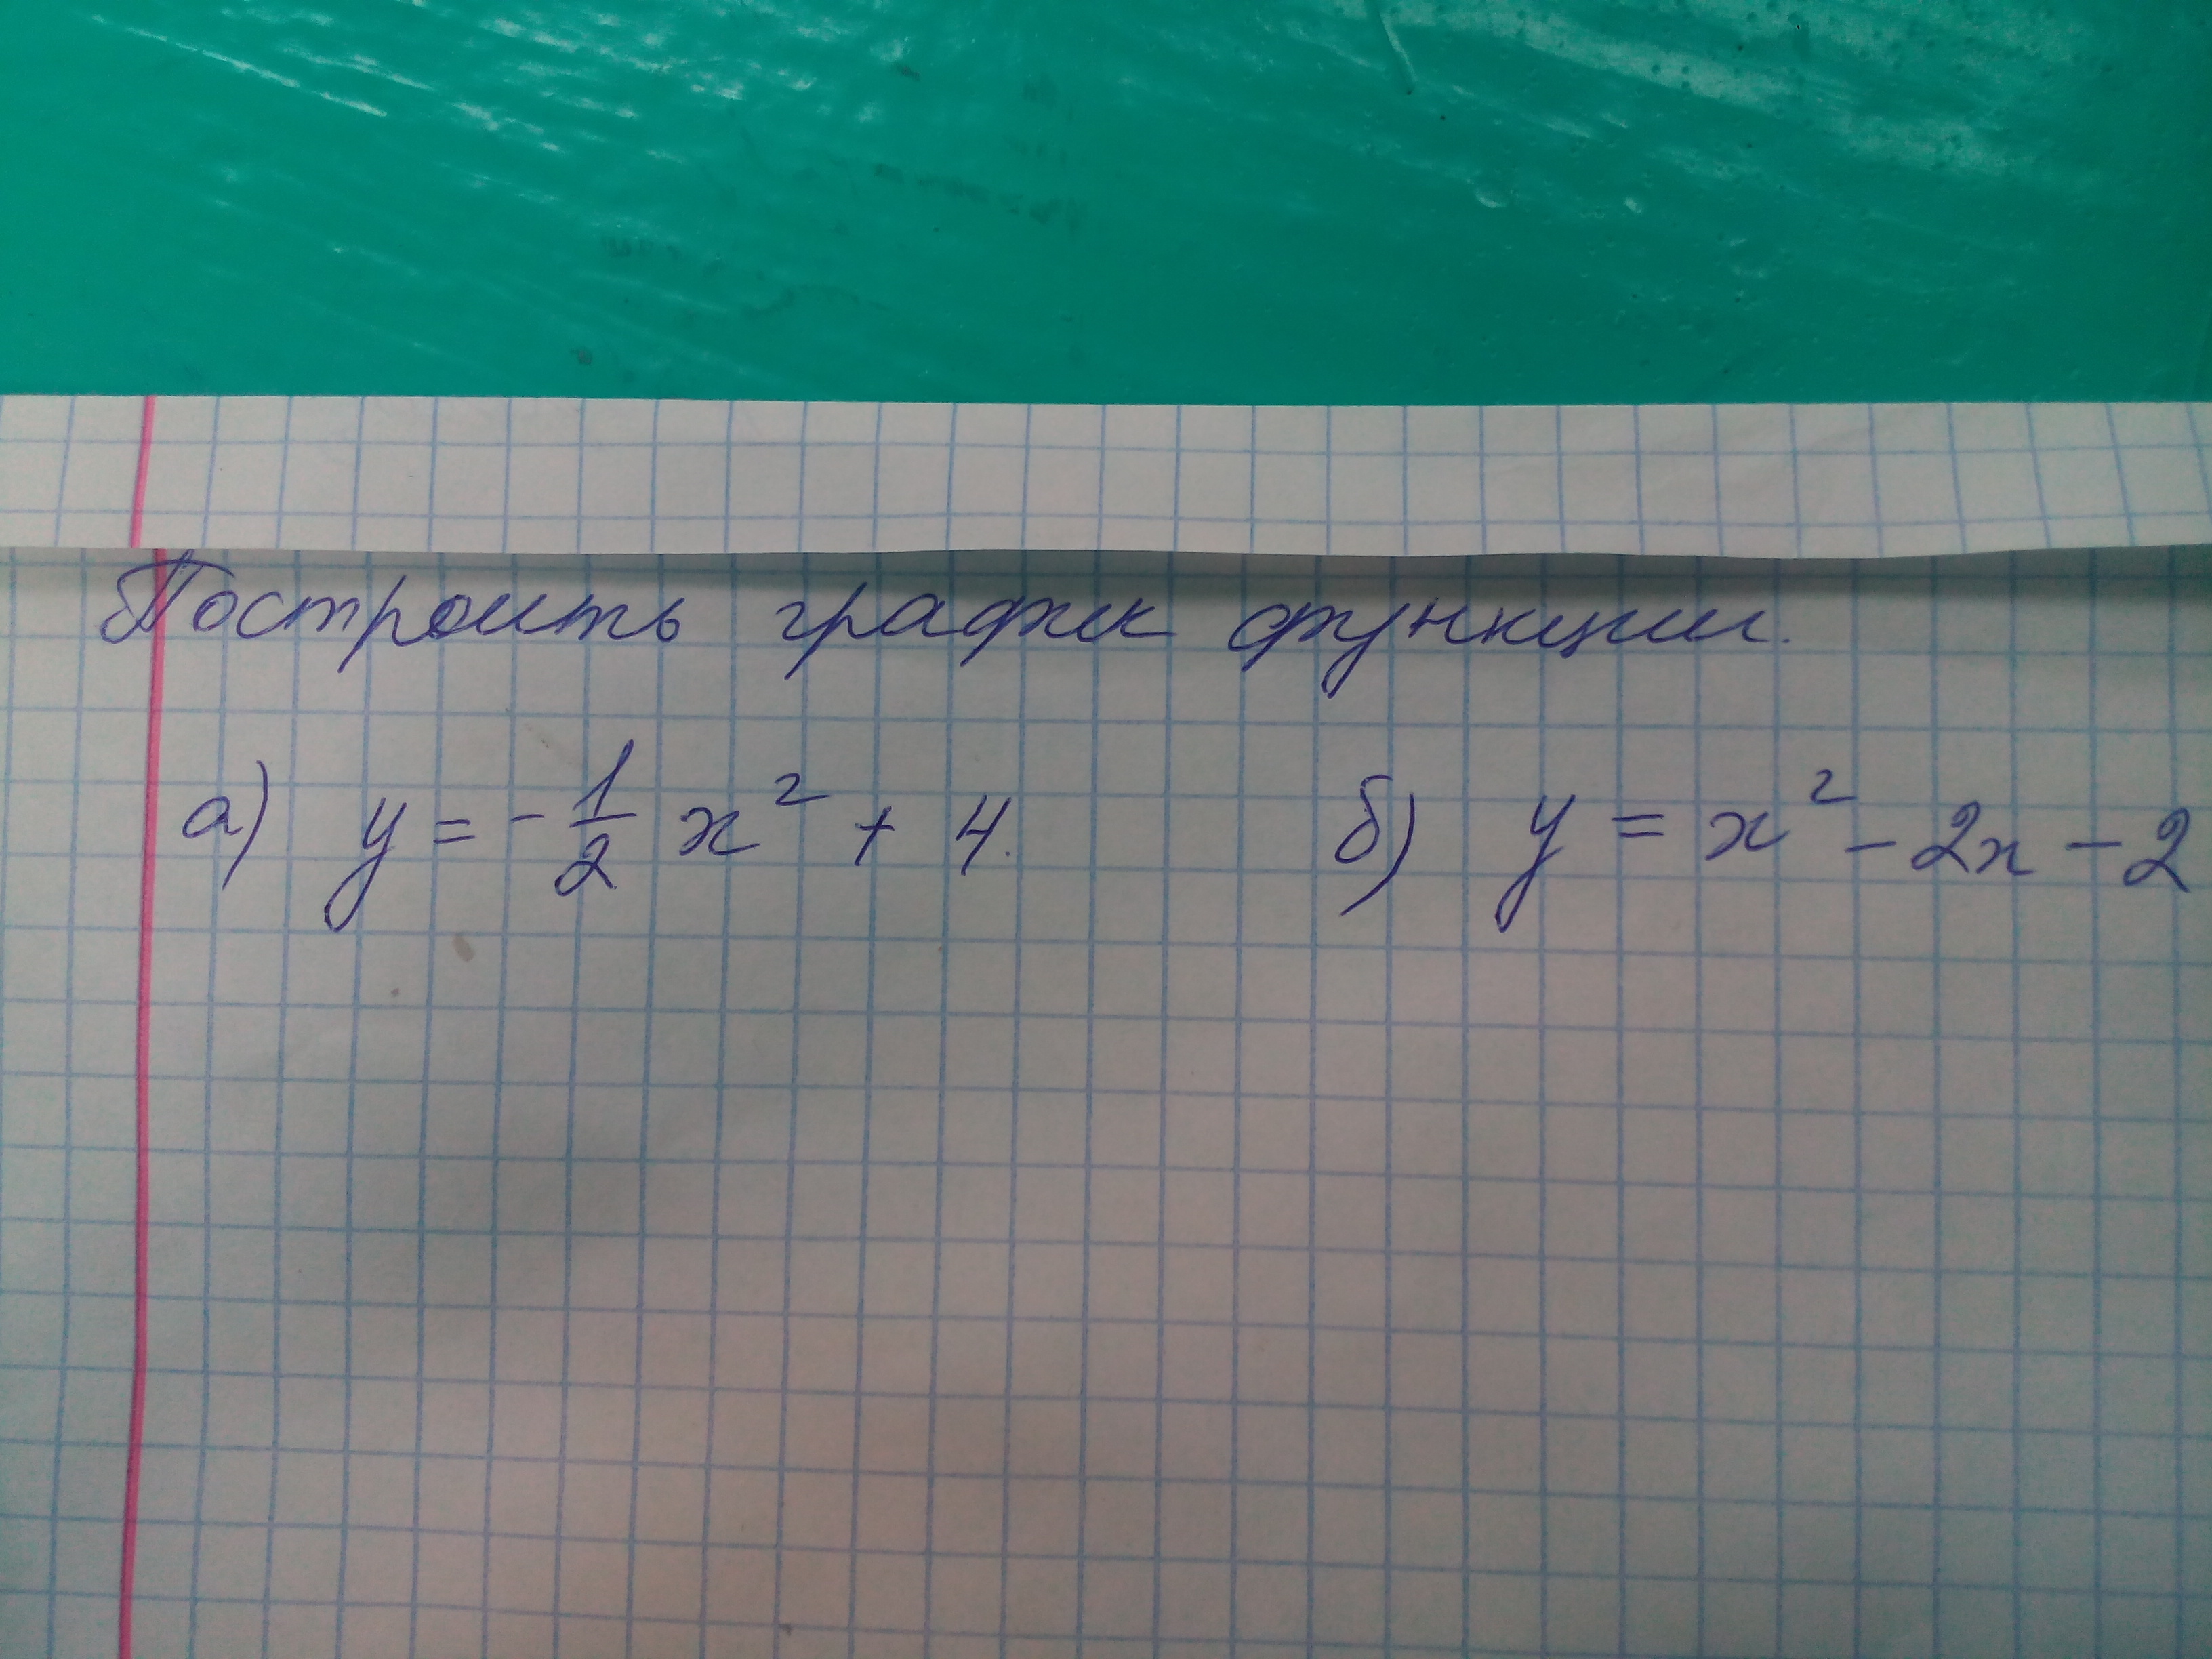 Построить график функции.
а) y = - 1/2 x² + 4. б) y = x² - 2x - 2